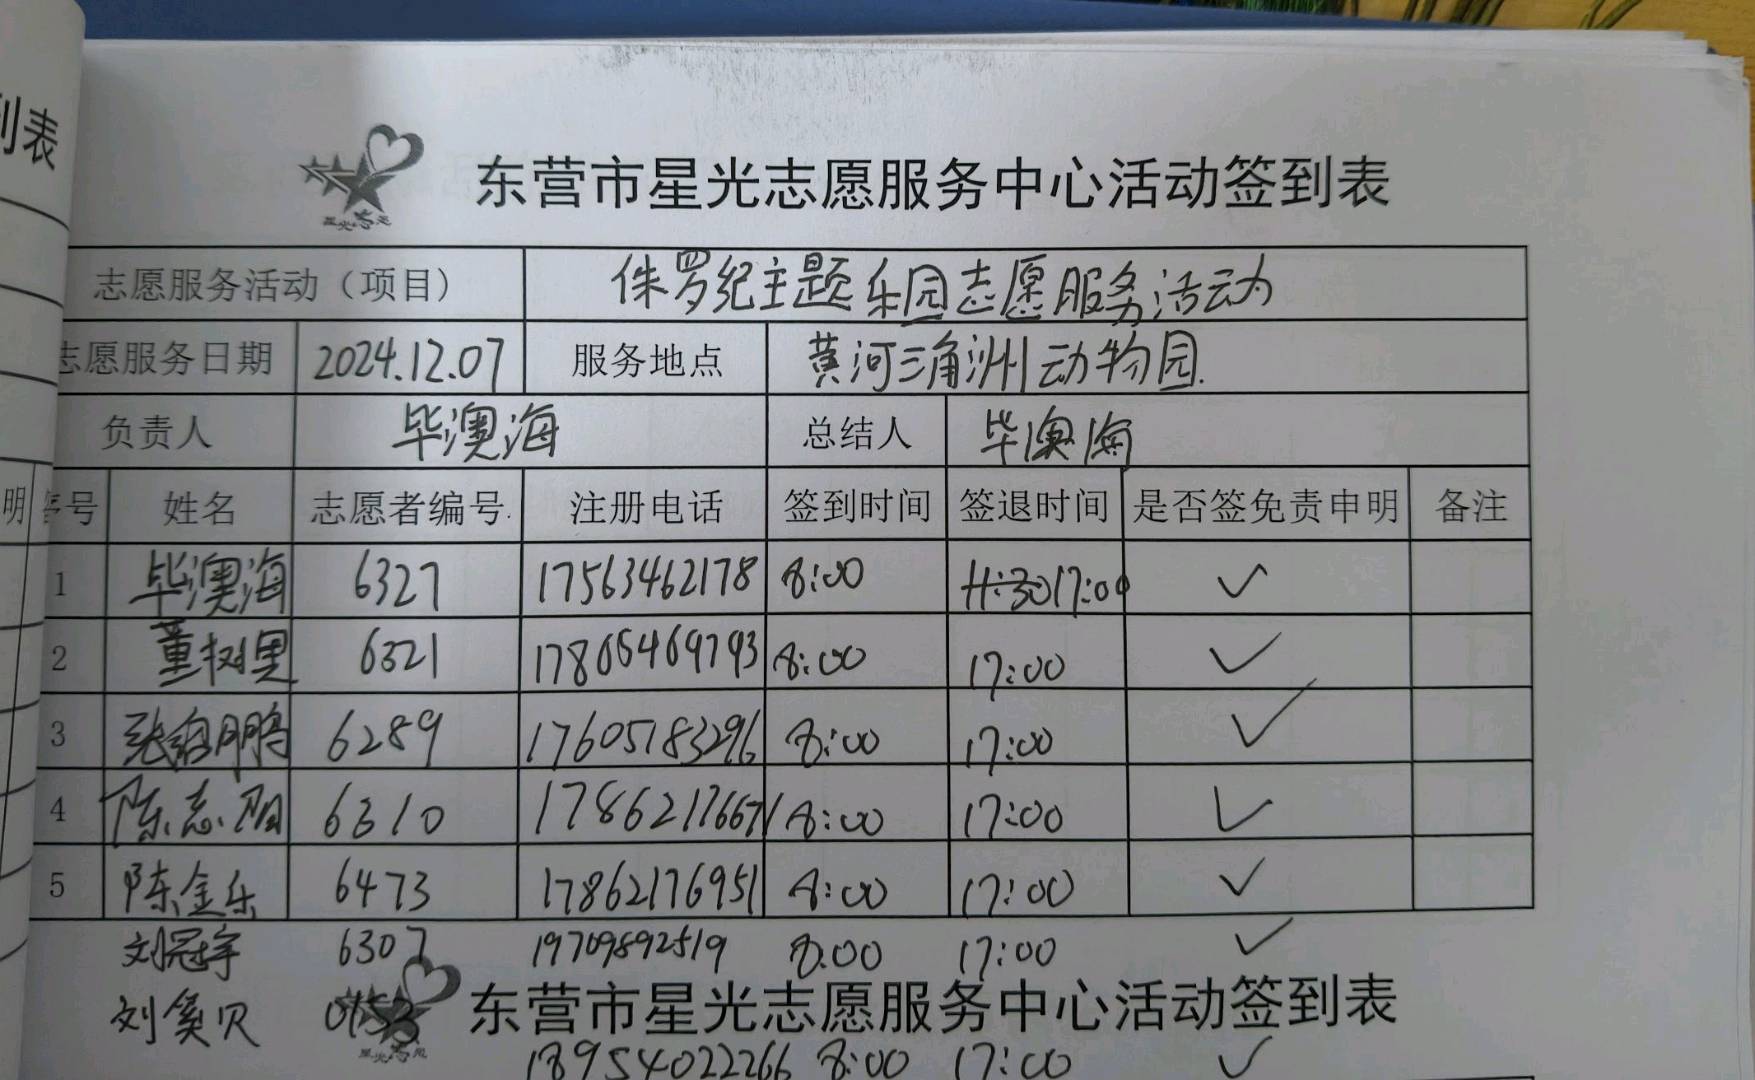 到表
东营市星光志愿服务中心活动签到表
星光志愿
志愿服务活动（项目） 侏罗纪主题乐园志愿服务活动
志愿服务日期 2024.12.07 服务地点 黄河三角洲动物园
负责人 毕澳海 总结人 毕澳海
明 序号 姓名 志愿者编号 注册电话 签到时间 签退时间 是否签免责申明 备注
1 毕澳海 6327 17563462178 8:00 11:30 17:00 ✓
2 董树果 6321 17865469793 8:00 17:00 ✓
3 张绍鹏 6289 17605183296 8:00 17:00 ✓
4 陈志阳 6310 17862177667 8:00 17:00 ✓
5 陈金乐 6473 17862176951 8:00 17:00 ✓
刘冠宇 6307 19709892519 8:00 17:00 ✓
刘奚贝 0153
东营市星光志愿服务中心活动签到表
星光志愿
18954022266 8:00 17:00 ✓